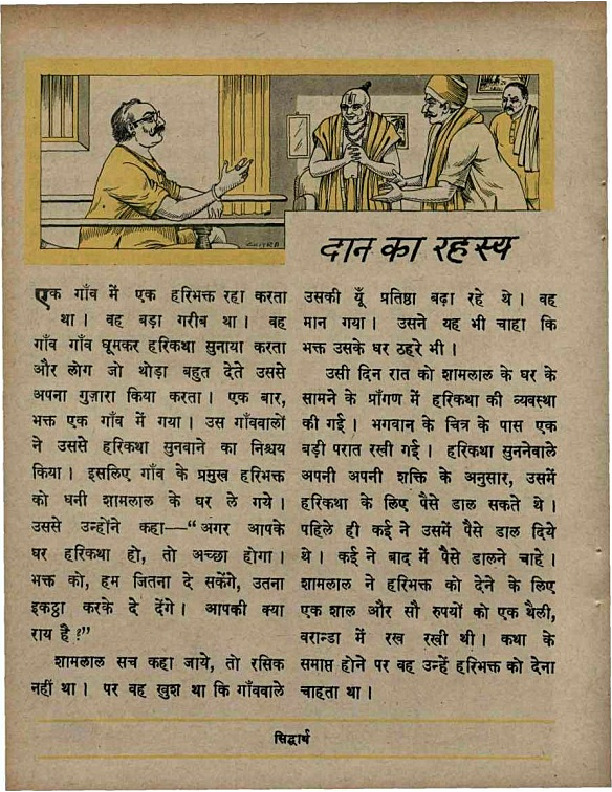 दान का रहस्य
एक गाँव में एक हरिभक्त रहा करता
था। वह बड़ा गरीब था। वह
गाँव गाँव घूमकर हरिकथा सुनाया करता
और लोग जो थोड़ा बहुत देते उससे
अपना गुज़ारा किया करता। एक बार,
भक्त एक गाँव में गया। उस गाँववालों
ने उससे हरिकथा सुनवाने का निश्चय
किया। इसलिए गाँव के प्रमुख हरिभक्त
को धनी शामलाल के घर ले गये।
उससे उन्होंने कहा—“अगर आपके
घर हरिकथा हो, तो अच्छा होगा।
भक्त को, हम जितना दे सकेंगे, उतना
इकट्ठा करके दे देंगे। आपकी क्या
राय है?”
शामलाल सच कहा जाये, तो रसिक
नहीं था। पर वह खुश था कि गाँववाले
उसकी यूँ प्रतिष्ठा बढ़ा रहे थे। वह
मान गया। उसने यह भी चाहा कि
भक्त उसके घर ठहरे भी।
उसी दिन रात को शामलाल के घर के
सामने के प्राँगण में हरिकथा की व्यवस्था
की गई। भगवान के चित्र के पास एक
बड़ी परात रखी गई। हरिकथा सुननेवाले
अपनी अपनी शक्ति के अनुसार, उसमें
हरिकथा के लिए पैसे डाल सकते थे।
पहिले ही कई ने उसमें पैसे डाल दिये
थे। कई ने बाद में पैसे डालने चाहे।
शामलाल ने हरिभक्त को देने के लिए
एक शाल और सौ रुपयों को एक थैली,
वरान्डा में रख रखी थी। कथा के
समाप्त होने पर वह उन्हें हरिभक्त को देना
चाहता था।
सिद्धार्थ